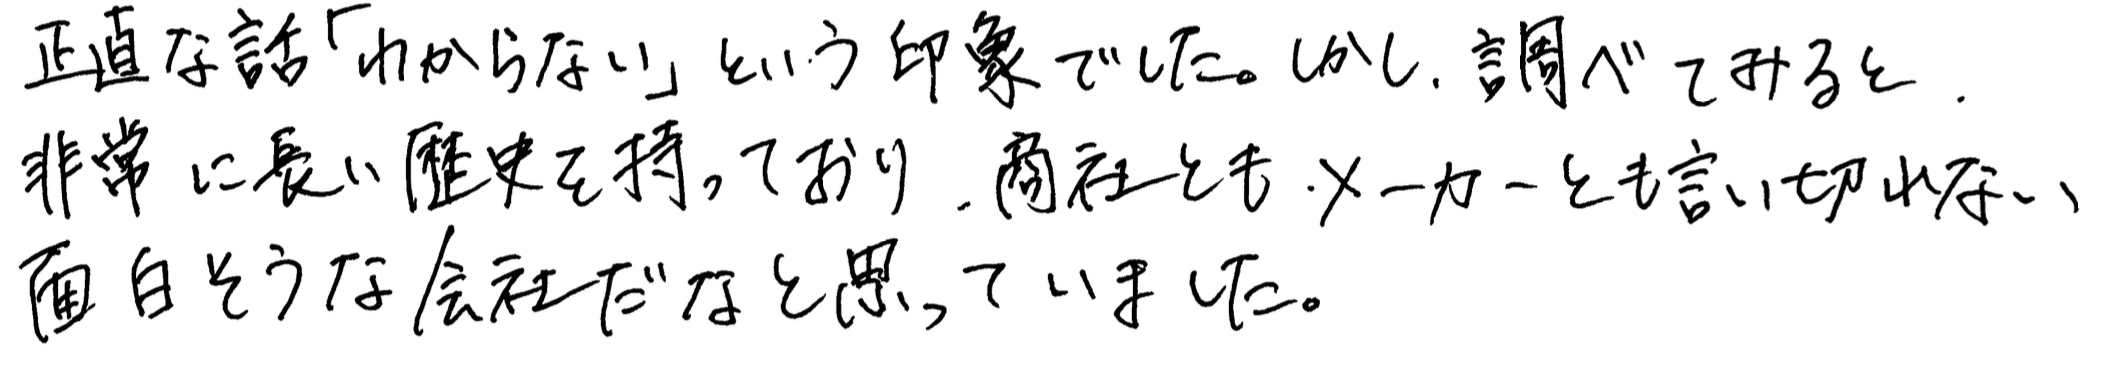 正直な話「わからない」という印象でした。しかし、調べてみると、
非常に長い歴史を持っており、商社とも、メーカーとも言い切れない
面白そうな会社だなと思っていました。